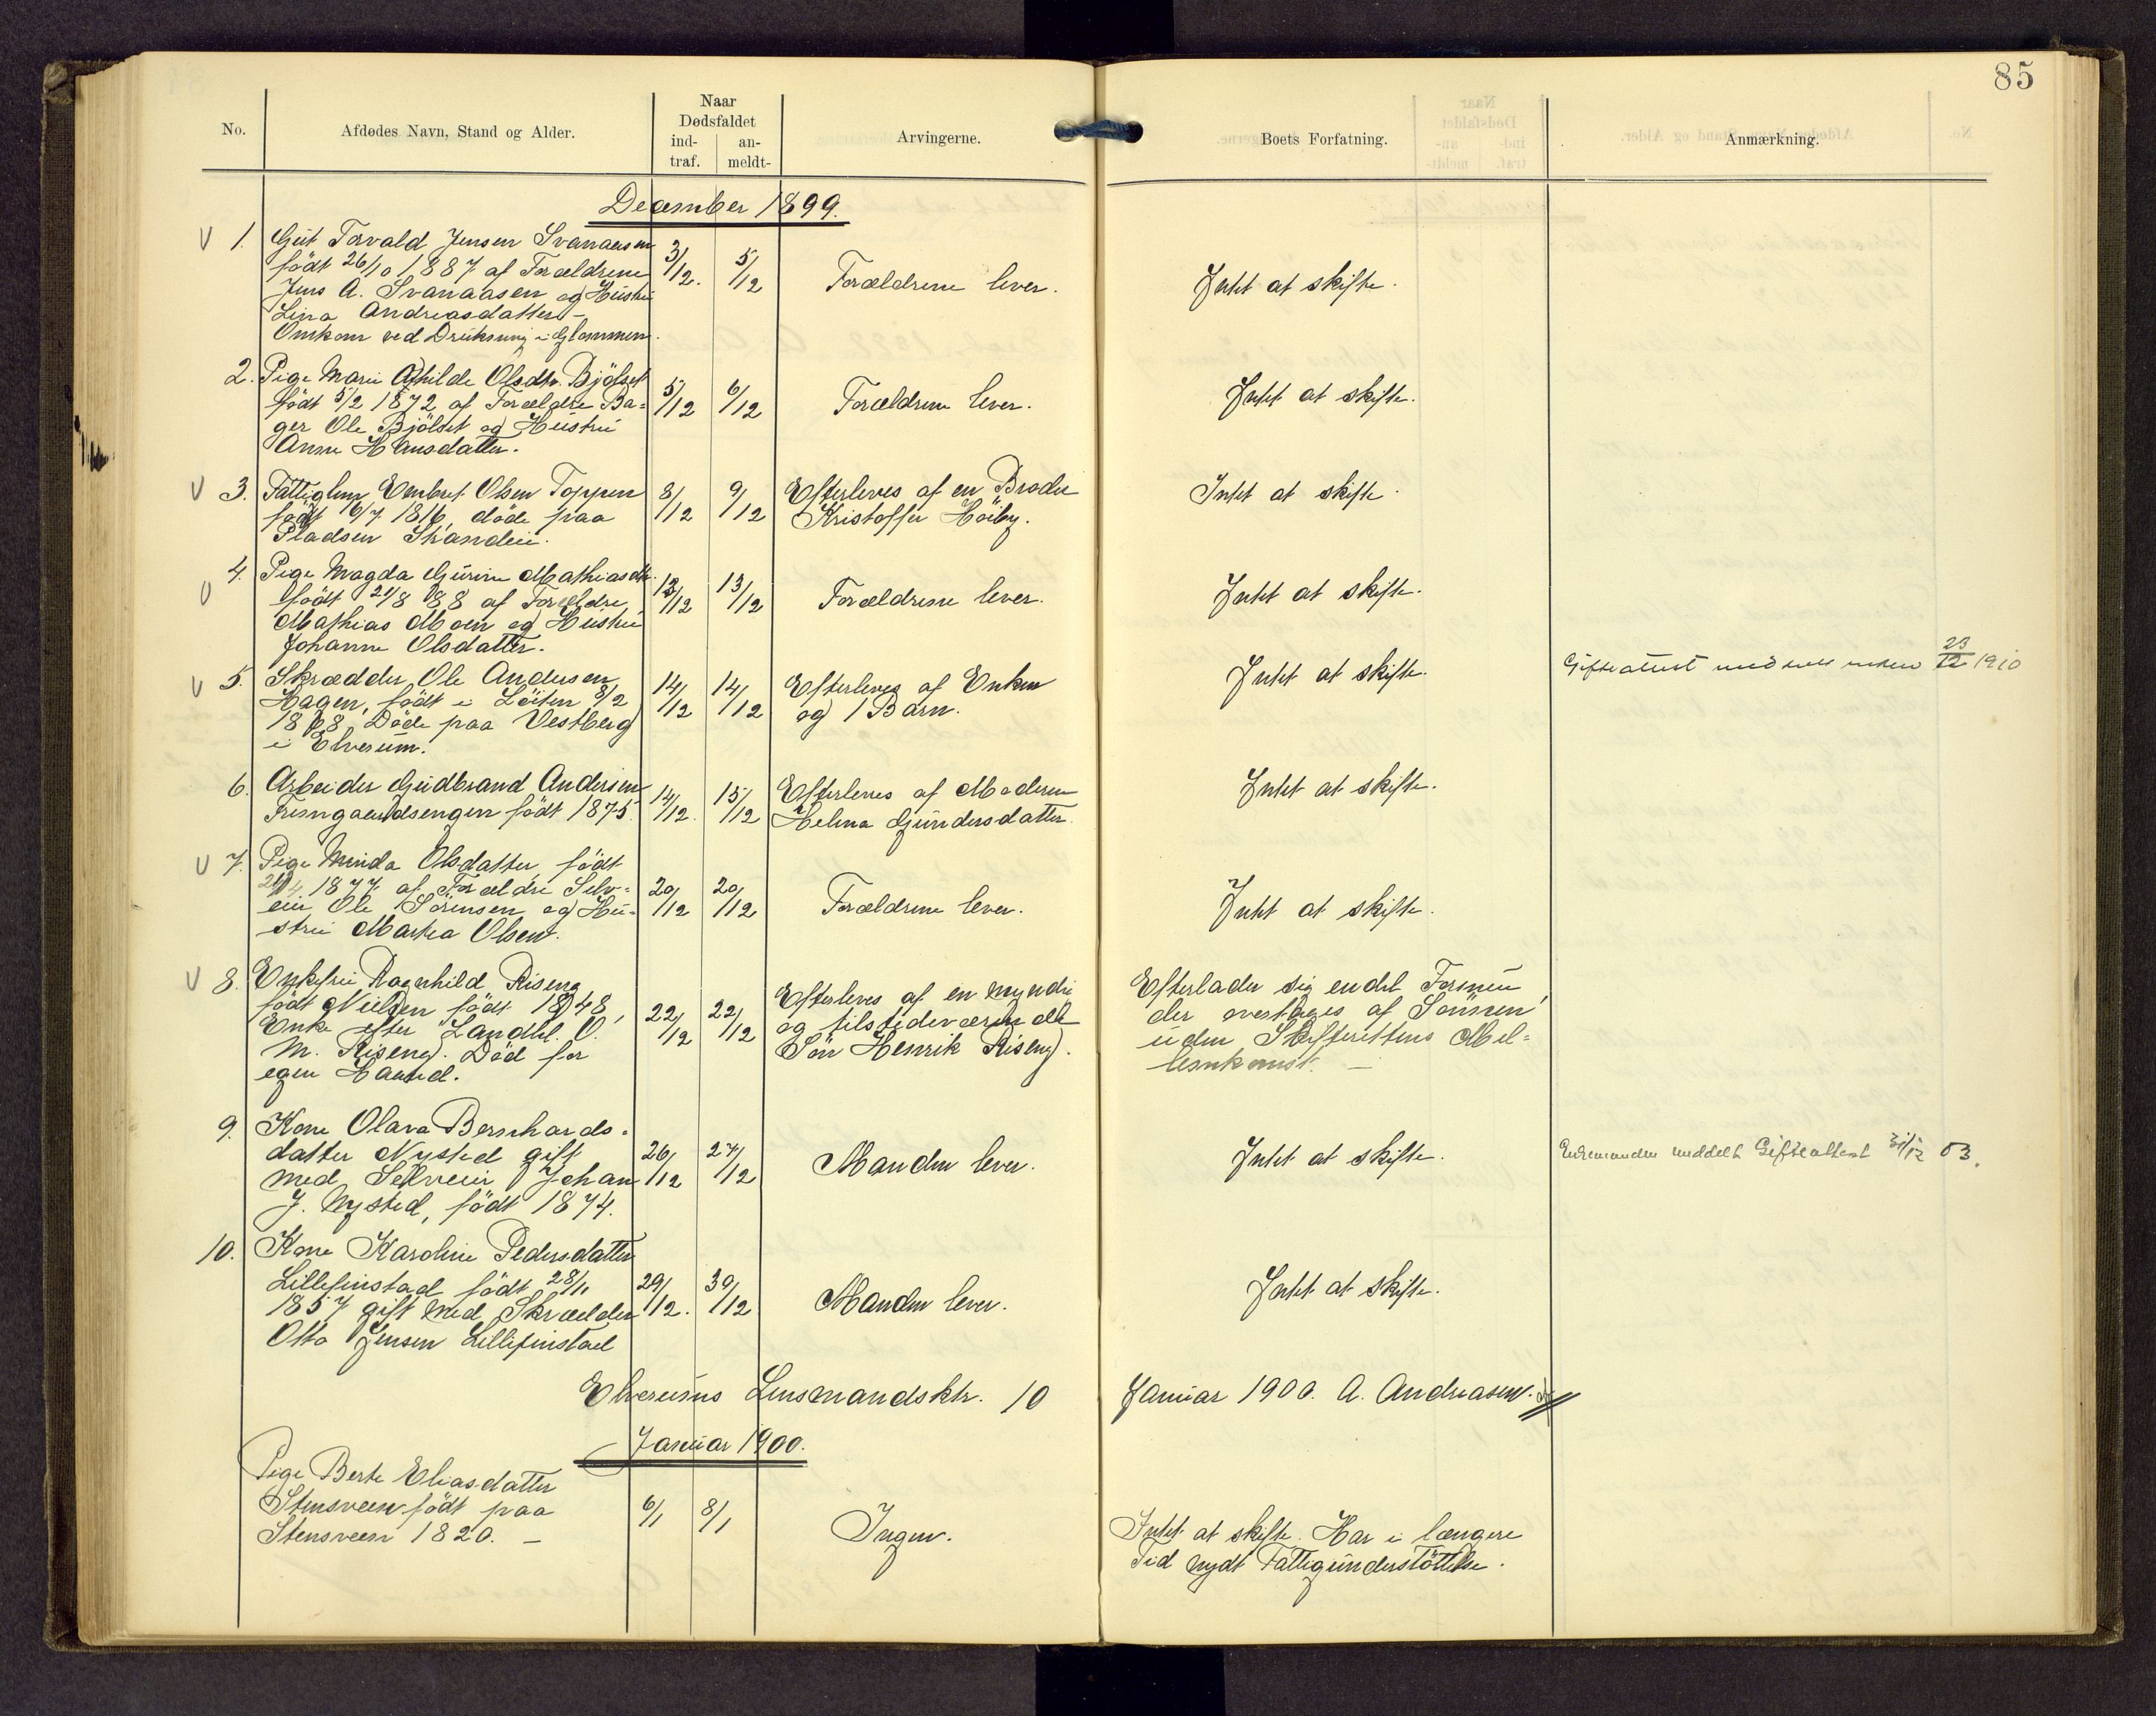 85
No.
Afdødes Navn, Stand og Alder.
Naar
Dødsfaldet
ind-
traf.
an-
meldt-
Arvingerne.
Boets Forfatning.
Anmærkning.
December 1899.
V 1. Gut Torvald Jensen Svanaasen
født 26/10 1887 af Forældrene
Jens A. Svanaasen og Hustru
Lina Andreasdatter -
Omkom ved Drukning i Glommen.
3/12.
5/12
Forældrene lever.
Intet at skifte.
2. Pige Marie Athilde Olsdtr. Bjölset
født 5/2 1872 af Forældre Ba-
ger Ole Bjölset og Hustru
Anne Hansdatter.
5/12
6/12
Forældrene lever.
Intet at skifte.
V 3. Fattiglem Embret Olsen Toppen
født 6/7 1816, døde paa
Pladsen Strandeie.
8/12
9/12
Efterleves af en Broder
Kristoffer Höiby.
Intet at skifte.
V 4. Pige Magda Gurine Mathiasdtr.
født 21/8 88 af Forældre
Mathias Moen og Hustru
Johanne Olsdatter.
12/12
13/12
Forældrene lever.
Intet at skifte.
V 5. Skrædder Ole Andersen
Hagen, født i Löiten 8/2
1868. Döde paa Vestberg
i Elverum.
14/12
14/12
Efterleves af Enken
og 1 Barn.
Intet at skifte.
Gifteattest meddelt enken 23/12 1910
6. Arbeider Gudbrand Andersen
født 1875.
14/12.
15/12
Efterleves af Moderen
Helena Gundersdatter.
Intet at skifte.
V 7. Pige Minda Olsdatter, født
1877 af Forældre Selv-
eier Ole Sörensen og Hu-
stru Marthea Olsen.
20/12
20/12
Forældrene lever.
Intet at skifte.
V 8. Enkefru Ragnhild Riseng
født Nielsen født 1848,
Enke efter Landhl. O.
M. Riseng. Död for
egen Haand.
22/12
22/12
Efterleves af en myndig
og tilstedeværende
Sön Henrik Riseng.
Efterlader sig endel Formue,
der overtages af Sönnen
uden Skifterettens Mel-
lemkomst. -
9. Kone Olava Bernhards-
datter Nysted gift
med Selveier Johan
J. Nysted, født 1874.
26/12
27/12
Manden lever.
Intet at skifte.
Enkemanden meddelt Gifteattest 31/12 03.
10. Kone Karoline Pedersdatter
Lillefinstad født 28/11
1857 gift med Skrædder
Otto Jensen Lillefinstad
29/12.
30/12
Manden lever.
Intet at skifte.
Elverums Lensmandsktr. 10 Januar 1900. A. Andreasen.
Januar 1900.
Pige Berte Eliasdatter
Stensveen født paa
Stensveen 1820. -
6/1
8/1
Ingen.
Intet at skifte. Har i længere
Tid nydt Fattigunderstöttelse.